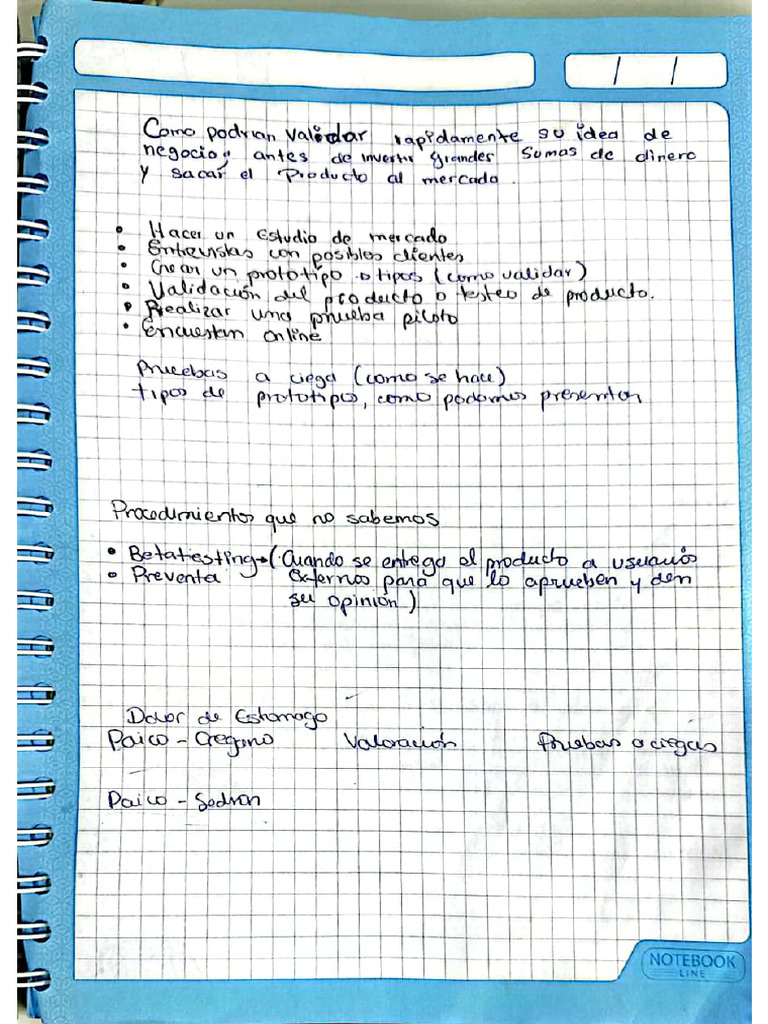 / /
Como podrian validar rapidamente su idea de
negocio; antes de invertir grandes sumas de dinero
y sacar el Producto al mercado.
• Hacer un Estudio de mercado
• Entrevistas con posibles clientes
• Crear un prototipo o tipos (como validar)
• Validación del producto o testeo de producto.
• Realizar una prueba piloto
• Encuestan online
Pruebas a ciega (como se hace)
tipos de prototipos, como podamos presentar
Procedimientos que no sabemos
• Betatesting → (Cuando se entrega el producto a usuarios
• Preventa externos para que lo aprueben y den
su opinión)
Dolor de Estomago
Paico - Valoración Pruebas a ciegas
Paico -
NOTEBOOK
LINE